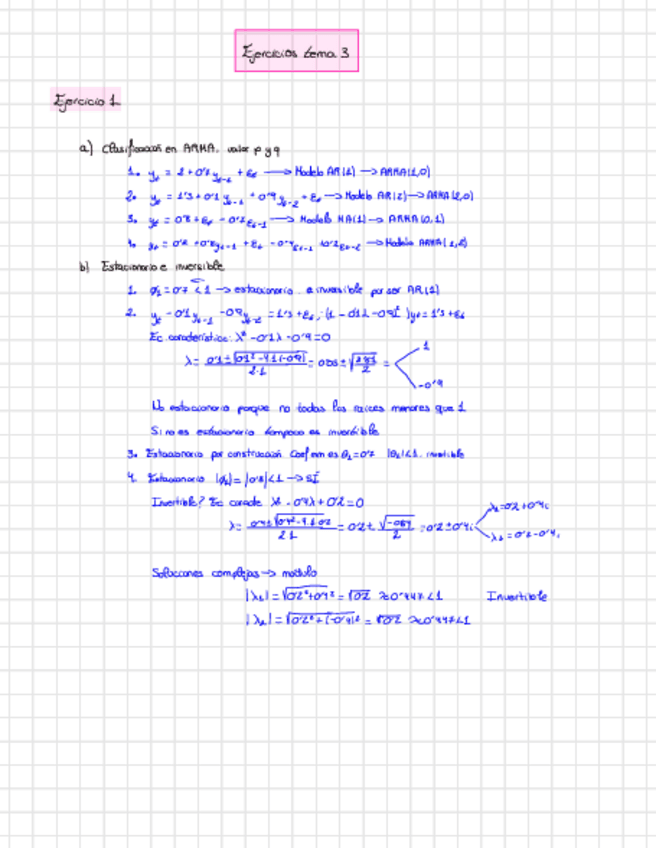 Ejercicios tema 3
Ejercicio 1
a) Clasificación en ARMA, valor p y q
1. yt = 2 + 0'7 yt-1 + εt ⟶ Modelo AR(1) → ARMA(1,0)
2. yt = 1'3 + 0'1 yt-1 + 0'9 yt-2 + εt → Modelo AR(2) → ARMA(2,0)
3. yt = 0'8 + εt - 0'7 εt-1 → Modelo MA(1) → ARMA(0,1)
4. yt = 0'2 + 0'8 yt-1 + εt - 0'4 εt-1 + 0'2 εt-2 → Modelo ARMA(1,2)
b) Estacionario e invertible
1. φ1 = 0'7 < 1 → estacionario e invertible por ser AR(1)
2. yt - 0'1 yt-1 - 0'9 yt-2 = 1'3 + εt; (1 - 0'1L - 0'9L²) yt = 1'3 + εt
Ec característica: λ² - 0'1λ - 0'9 = 0
λ = 0'1 ± √0'1² - 4·1·(-0'9) / 2·1 = 0'05 ± √3'61 / 2 = 1
-0'9
No estacionario porque no todas las raices menores que 1
Si no es estacionario tampoco es invertible
3. Estacionario por construcción Coef em es θ1 = 0'7 |θ1| < 1, invertible
4. Estacionario |φ1| = |0'8| < 1 → SÍ
Invertible? Ec caract λ² - 0'4λ + 0'2 = 0
λ = 0'4 ± √0'4² - 4·1·0'2 / 2·1 = 0'2 ± √-0'64 / 2 = 0'2 ± 0'4i
λ1 = 0'2 + 0'4i
λ2 = 0'2 - 0'4i
Soluciones complejas → modulo
|λ1| = √0'2² + 0'4² = √0'2 ≈ 0'447 < 1 Invertible
|λ2| = √0'2² + (-0'4)² = √0'2 ≈ 0'447 < 1